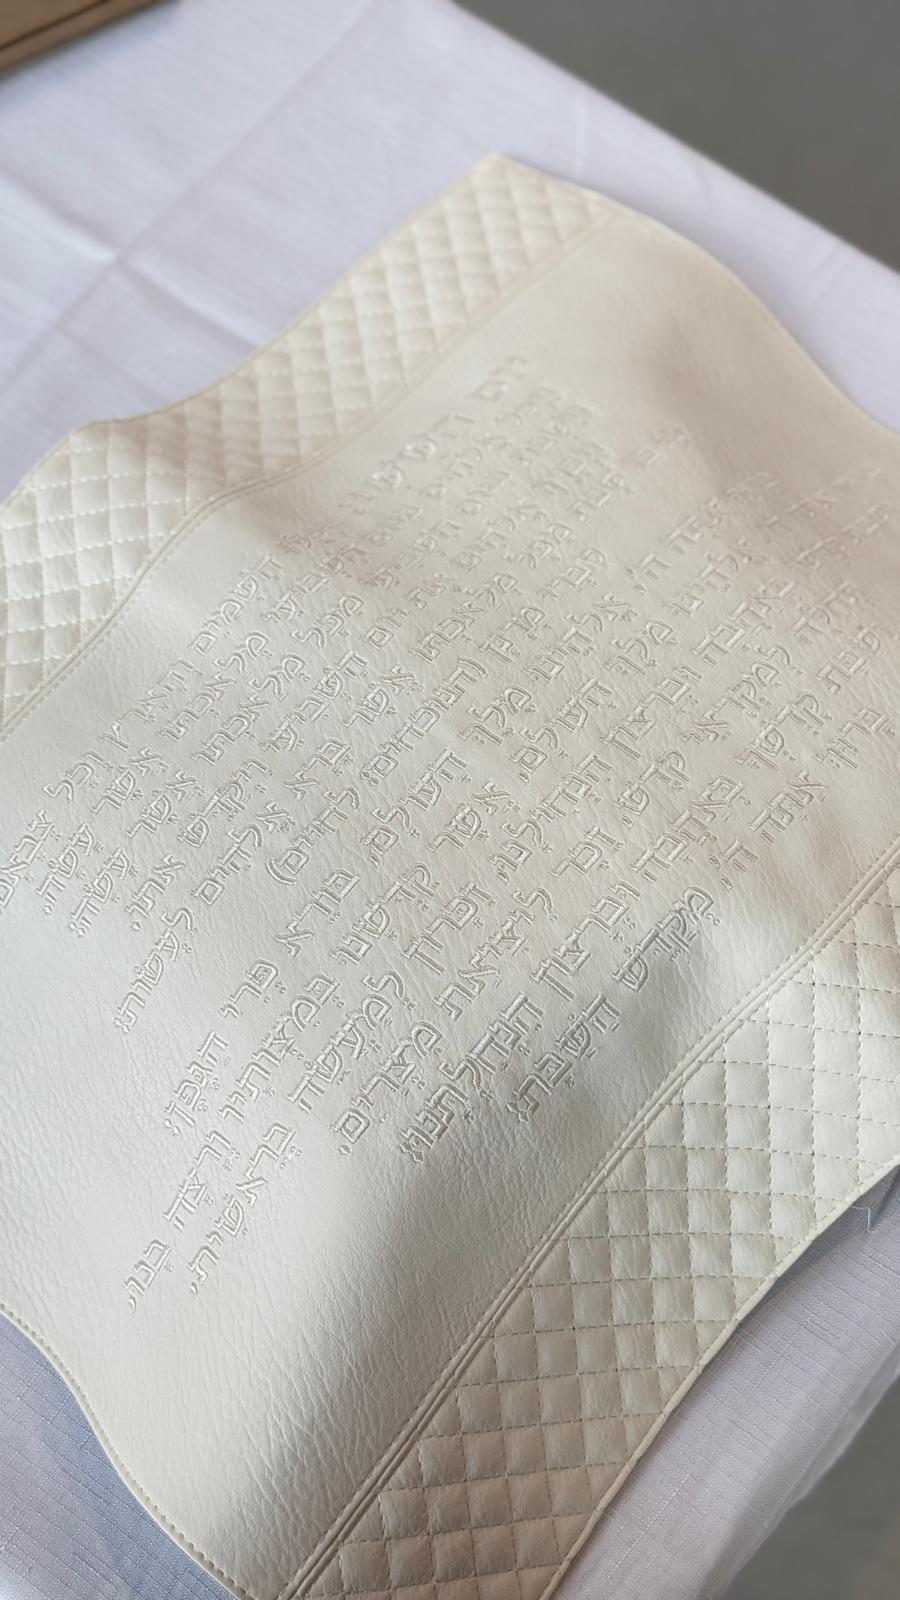 יוֹם הַשִּׁשִּׁי: וַיְכֻלּוּ הַשָּׁמַיִם וְהָאָרֶץ וְכָל צְבָאָם
וַיְכַל אֱלֹהִים בַּיּוֹם הַשְּׁבִיעִי מְלַאכְתּוֹ אֲשֶׁר עָשָׂה,
וַיִּשְׁבֹּת בַּיּוֹם הַשְּׁבִיעִי מִכָּל מְלַאכְתּוֹ אֲשֶׁר עָשָׂה:
וַיְבָרֶךְ אֱלֹהִים אֶת יוֹם הַשְּׁבִיעִי וַיְקַדֵּשׁ אֹתוֹ,
שָׁבַת מִכָּל מְלַאכְתּוֹ אֲשֶׁר בָּרָא אֱלֹהִים לַעֲשׂוֹת:
סַבְרִי מָרָנָן (הנוכחים: לְחַיִּים)
אַתָּה ה', אֱלֹהֵינוּ מֶלֶךְ הָעוֹלָם, בּוֹרֵא פְּרִי הַגֶּפֶן:
אַתָּה ה', אֱלֹהֵינוּ מֶלֶךְ הָעוֹלָם, אֲשֶׁר קִדְּשָׁנוּ בְּמִצְוֹתָיו וְרָצָה בָנוּ,
בְּאַהֲבָה וּבְרָצוֹן הִנְחִילָנוּ, זִכָּרוֹן לְמַעֲשֵׂה בְרֵאשִׁית,
תְּחִלָּה לְמִקְרָאֵי קֹדֶשׁ, זֵכֶר לִיצִיאַת מִצְרַיִם,
שַׁבַּת קָדְשְׁךָ בְּאַהֲבָה וּבְרָצוֹן הִנְחַלְתָּנוּ:
בָּרוּךְ אַתָּה ה', מְקַדֵּשׁ הַשַּׁבָּת: